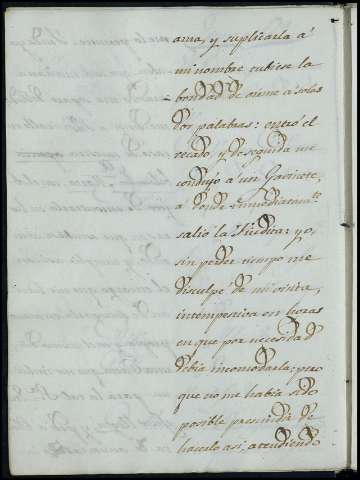 ama, y suplicarla á
mi nombre tubiese la
bondad de oirme à solas
dos palabras: entró el
recado, y deseguida me
condujo á un Gavinete,
a donde inmediatamte.
salió la Tiudica: yo,
sin perder tiempo me
disculpé de mi visita,
intempestiva en horas
en que por necesidad
debia incomodarla; pero
que no me habia sido
posible prescindir de
hacerlo asi, atendiendo